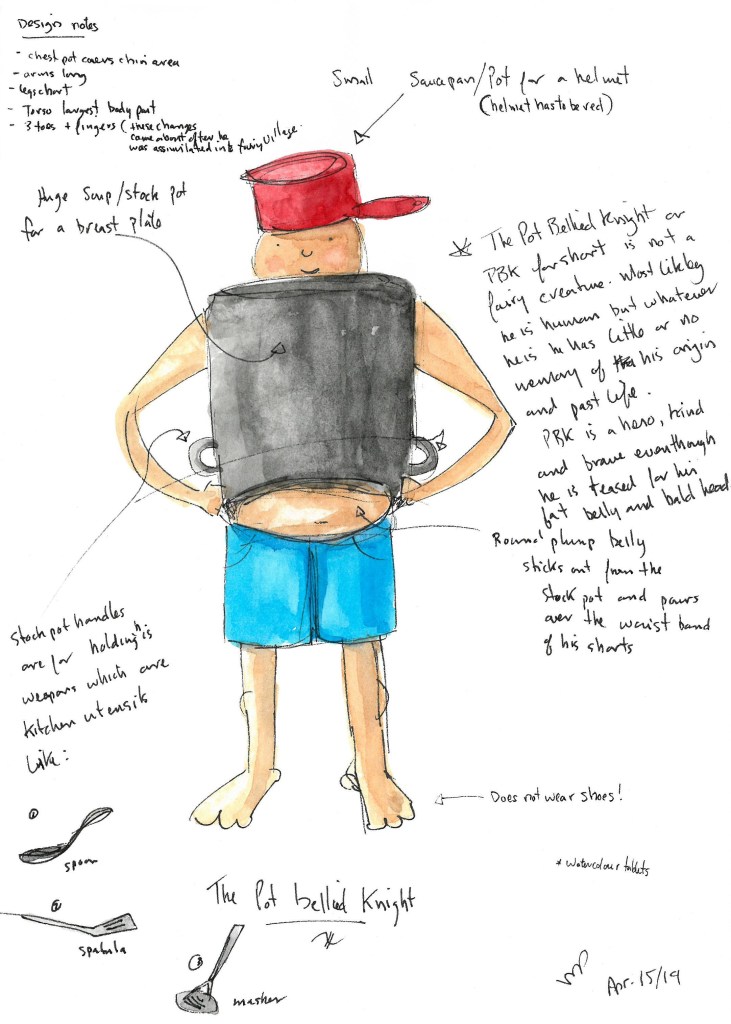 Design notes
- chest pot covers chin area
- arms long
- legs short
- Torso largest body part
- 3 toes + fingers (these changes
came about after he
was assimilated into fairy village.
Small Saucepan/Pot for a helmet
(helmet has to be red)
Huge Soup/stock pot
for a breast plate
* The Pot Bellied Knight or
PBK for short is not a
fairy creature. Most likely
he is human but whatever
he is he has little or no
memory of his origin
and past life.
PBK is a hero, kind
and brave eventhough
he is teased for his
fat belly and bald head
Round plump belly
sticks out from the
stock pot and pours
over the waist band
of his shorts
Stock pot handles
are for holding his
weapons which are
kitchen utensils
like:
① spoon
② spatula
③ masher
Does not wear shoes!
* watercolour tablets
The Pot bellied Knight
Apr. 15/19